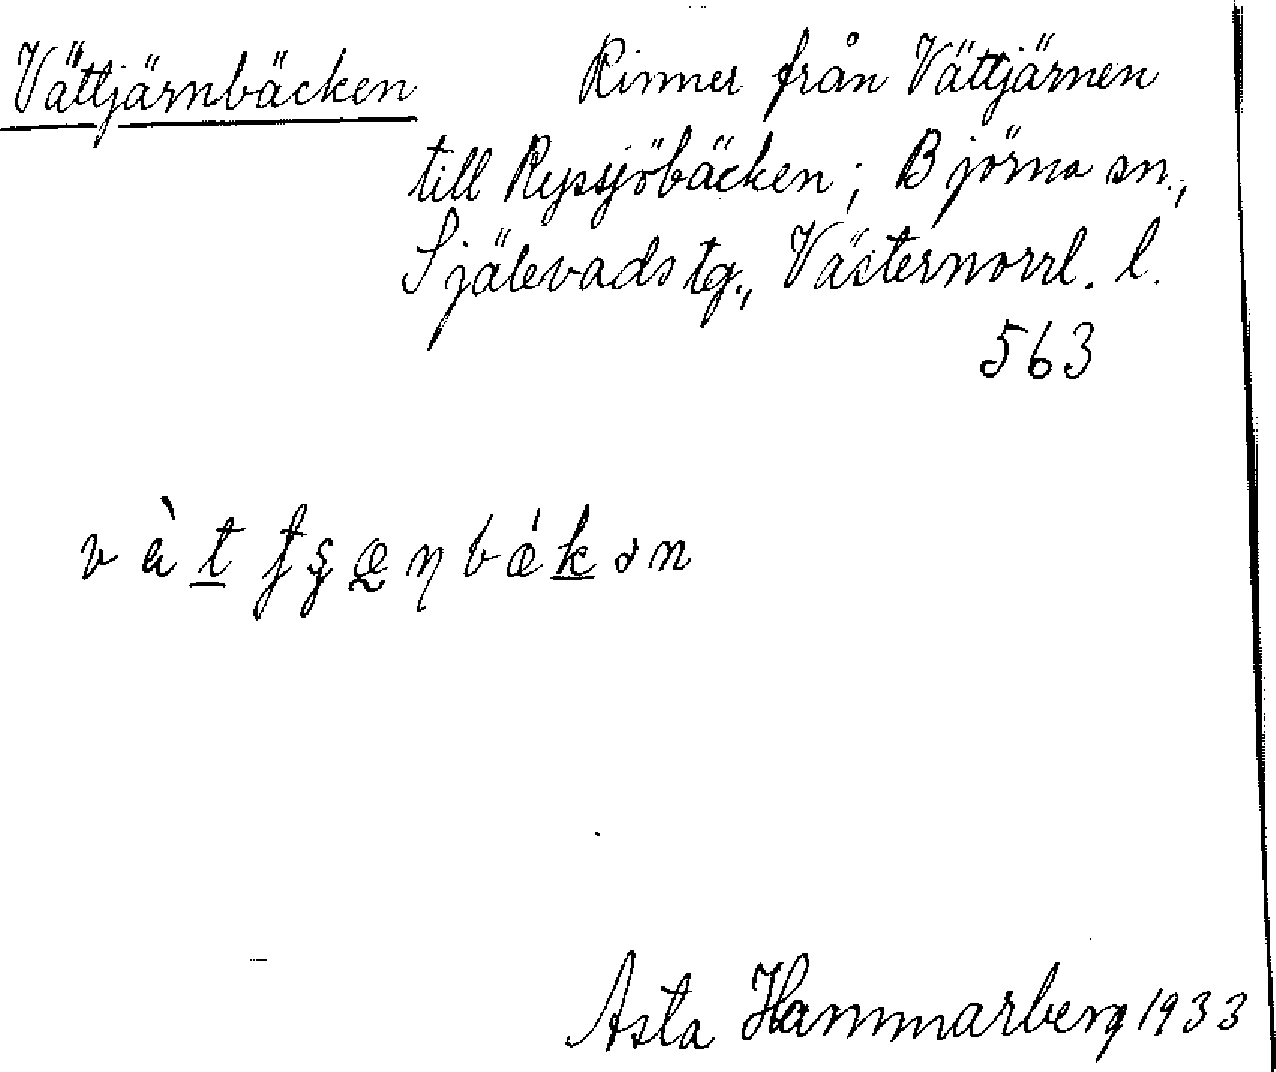 Vättjärnbäcken Rinner från Vättjärnen
till Ryssjöbäcken; Björna sn.,
Själevads tg., Västernorrl. l.
563
Asta Hammarberg 1933